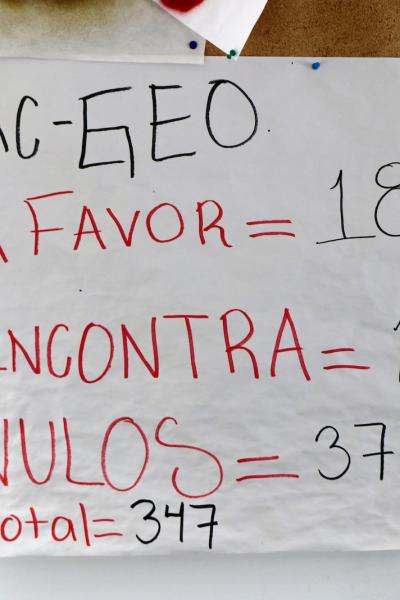 AC-GEO.
A FAVOR = 18
ENCONTRA =
NULOS = 37
otal= 347